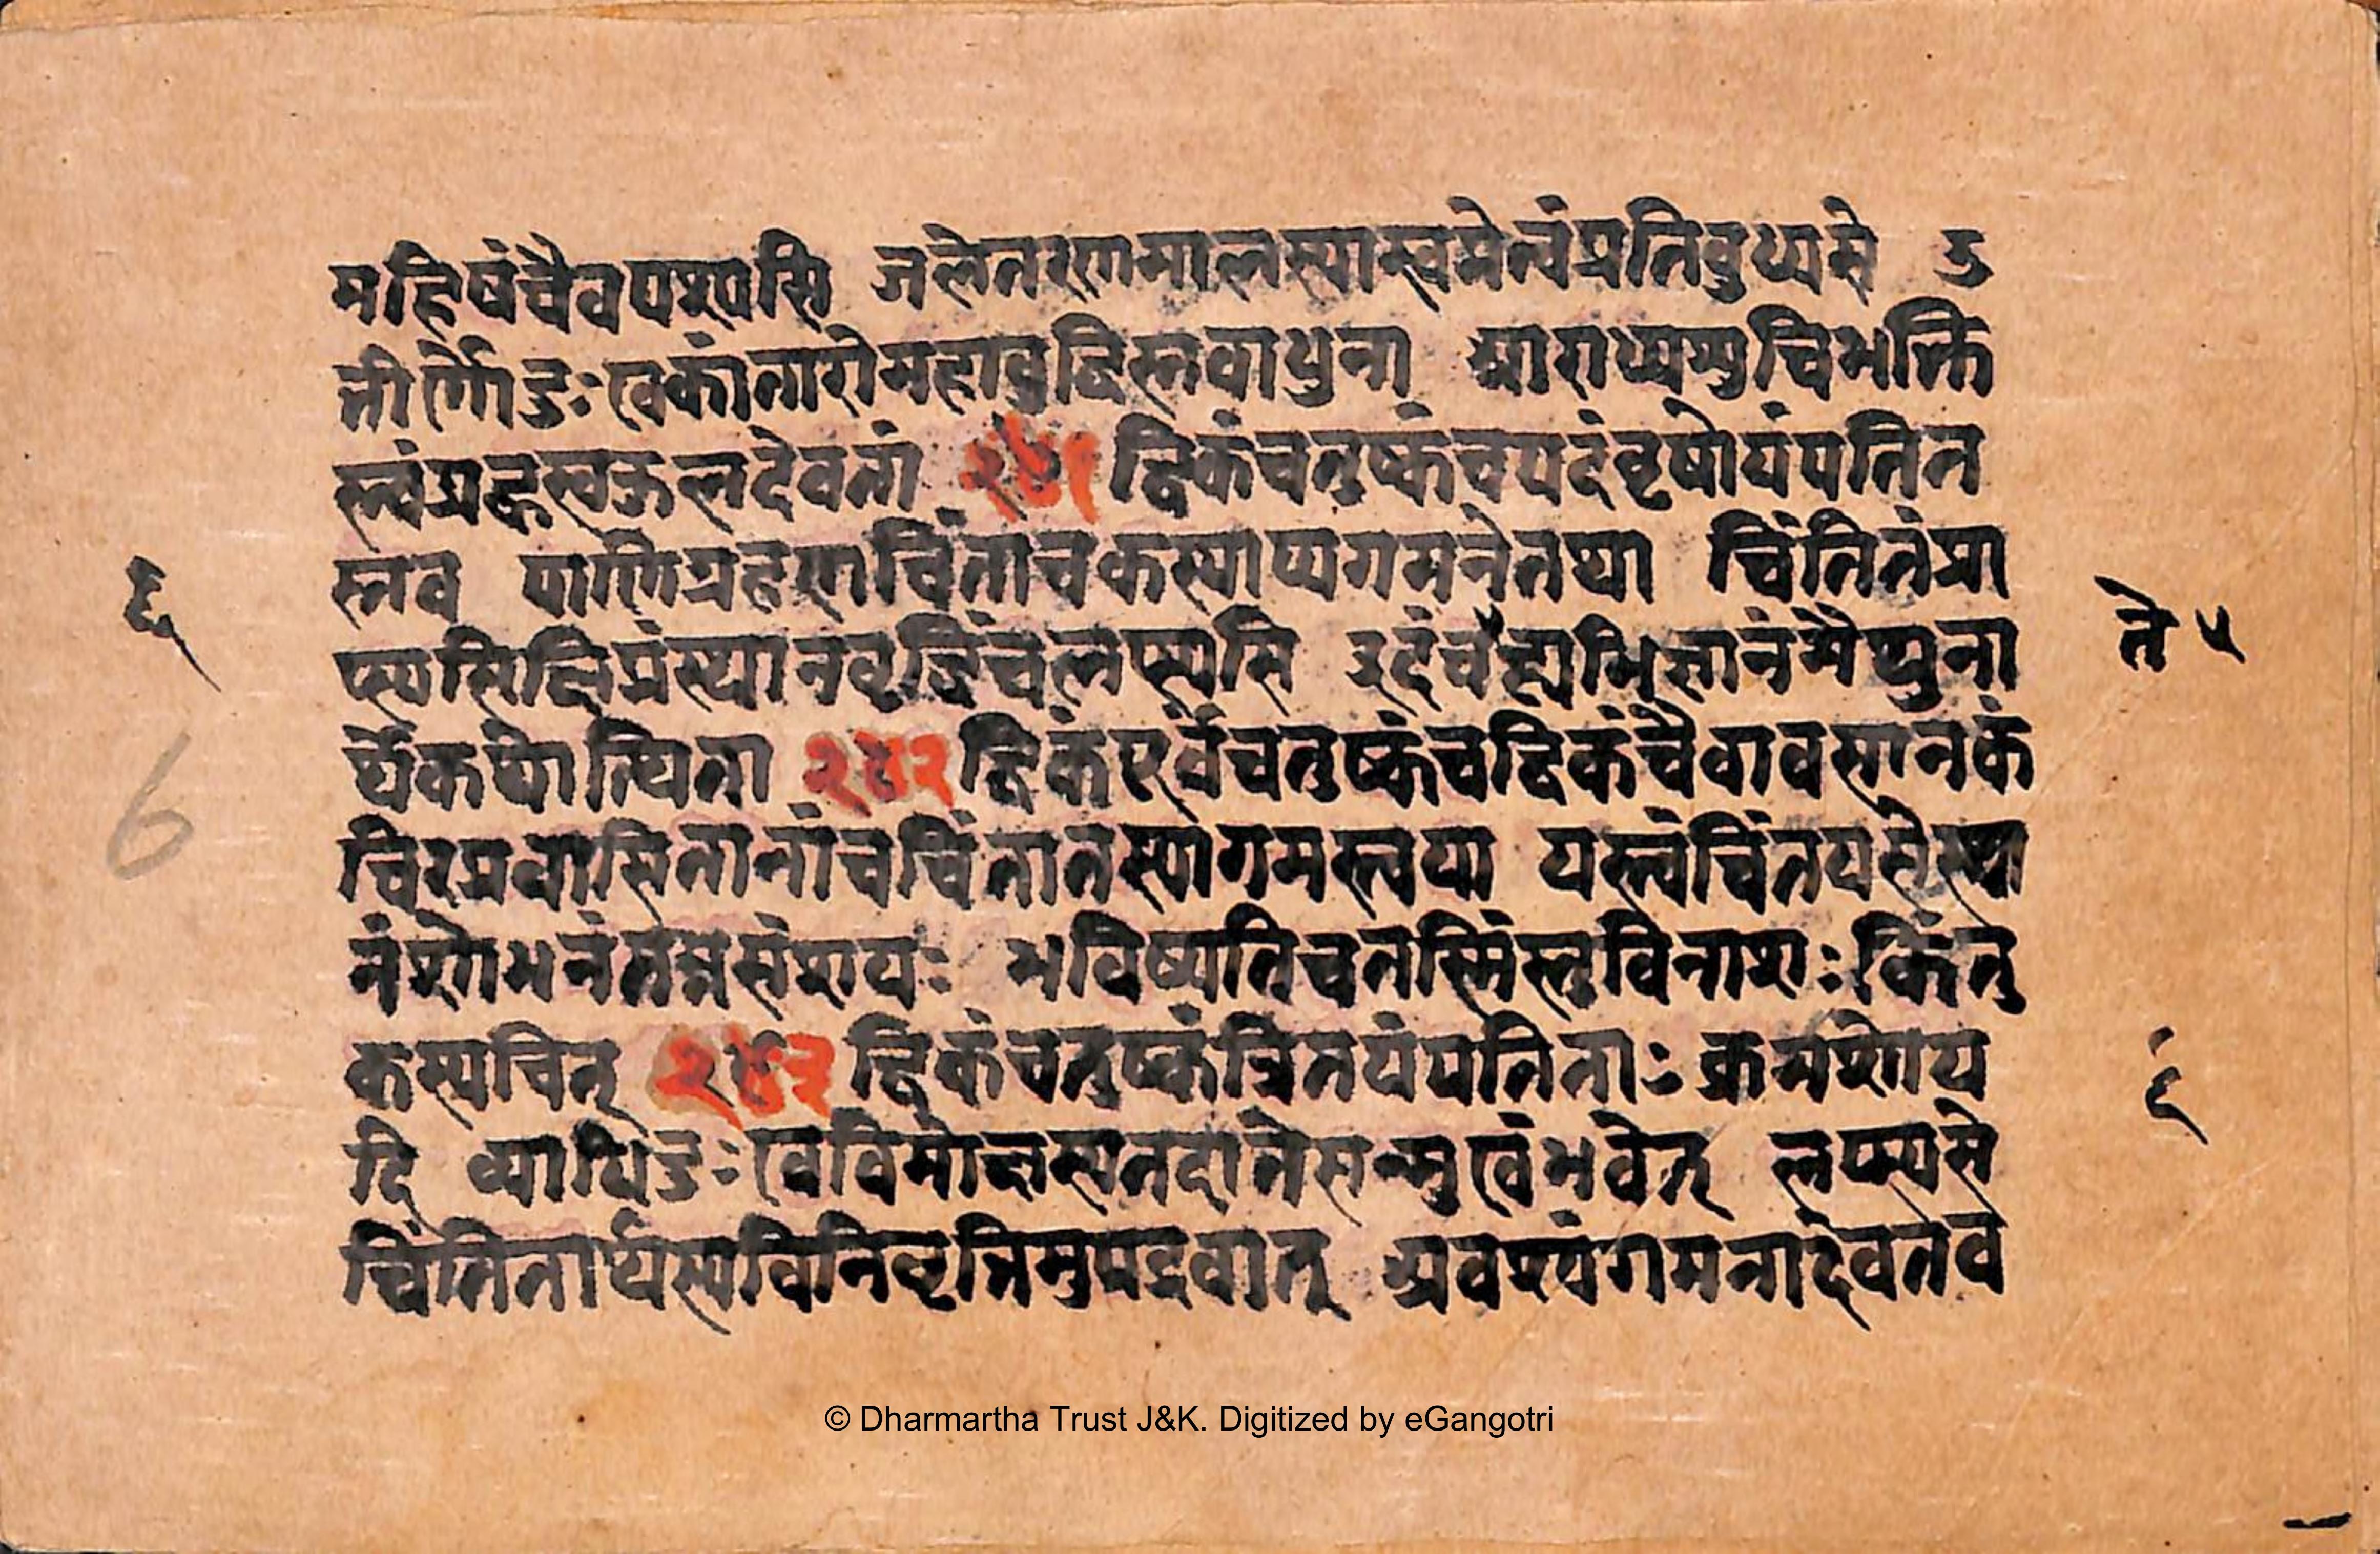 महिषंचैवपश्यसि जलेतरणमालस्यास्वप्नेत्वंप्रतिबुध्यसे उ
त्तीर्णोदुःखकांतारोमहाबुद्धिस्तवाधुना आराध्यशुचिभक्ति
स्त्वंप्रह्वस्वकुलदेवतां २४१ द्विकंचतुष्कंचपदंवृषोयंपतित
स्तव पाणिग्रहणचिंताचकस्याप्यगमनेतथा चिंतितंप्रा
प्स्यसिक्षिप्रंस्थानवृद्धिंचलप्स्यसि इदंचैह्यभिज्ञानंमैथुना
र्थेकथोत्थिता २४२ द्विकंपूर्वंचतुष्कंचद्विकंचैवावसानकं
चिरप्रवासितानांचचिंतातस्यागमस्त्वया यस्त्वंचिंतयसेस्था
नंशोभनंतन्नसंशयः भविष्यतिचतस्मिंस्तुविनाशःकिंतु
कस्यचित् २४३ द्विकंचतुष्कंत्रितयंपतिताः क्रमशोय
दि व्याधिदुःखविमोक्षस्यतदातेसन्मुखंभवेत् लप्स्यसे
चिंतितार्थस्यविनिवृत्तिमुपद्रवात् अवश्यंगमनादेवतव
६
6
ते ५
६
© Dharmartha Trust J&K. Digitized by eGangotri